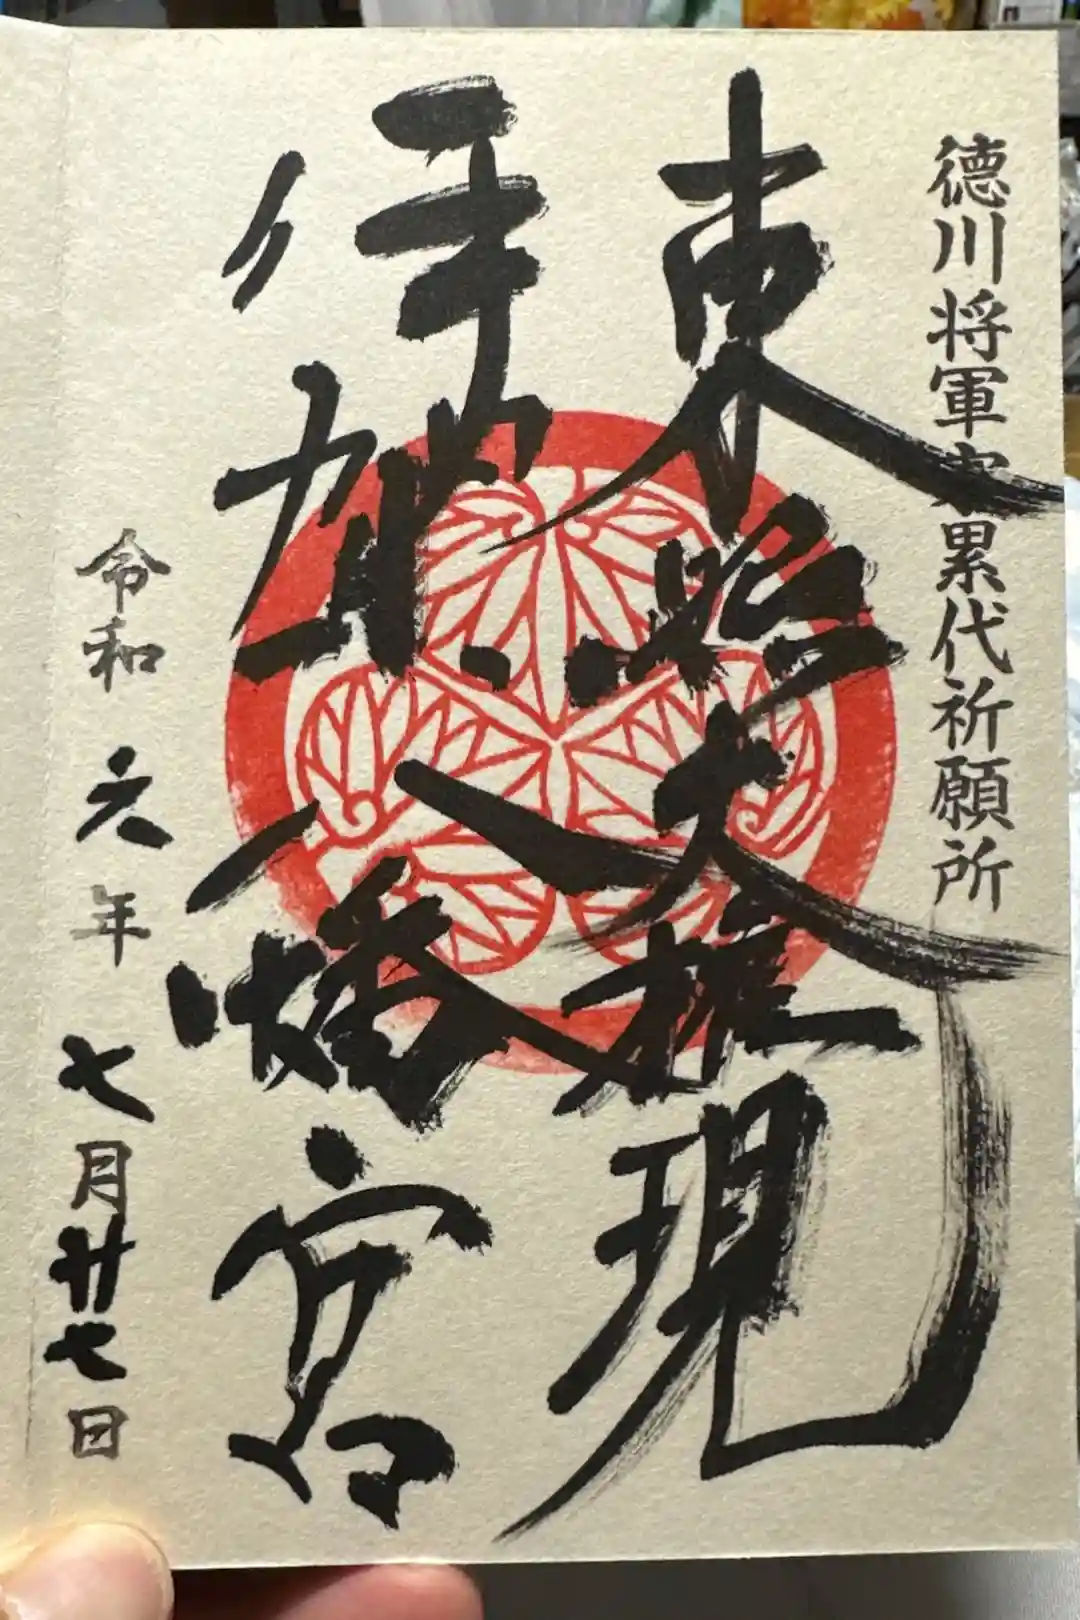 徳川将軍家累代祈願所
東照大権現
伊賀八幡宮
令和六年七月廿七日